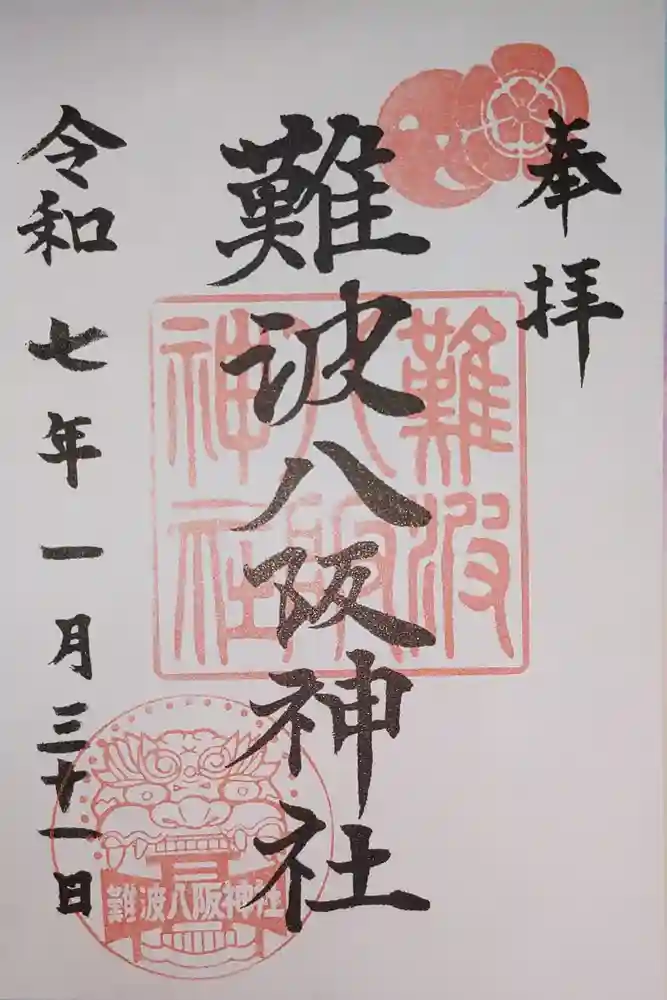 奉拝
難波八阪神社
難波八阪神社
令和七年一月三十一日
難波八阪神社